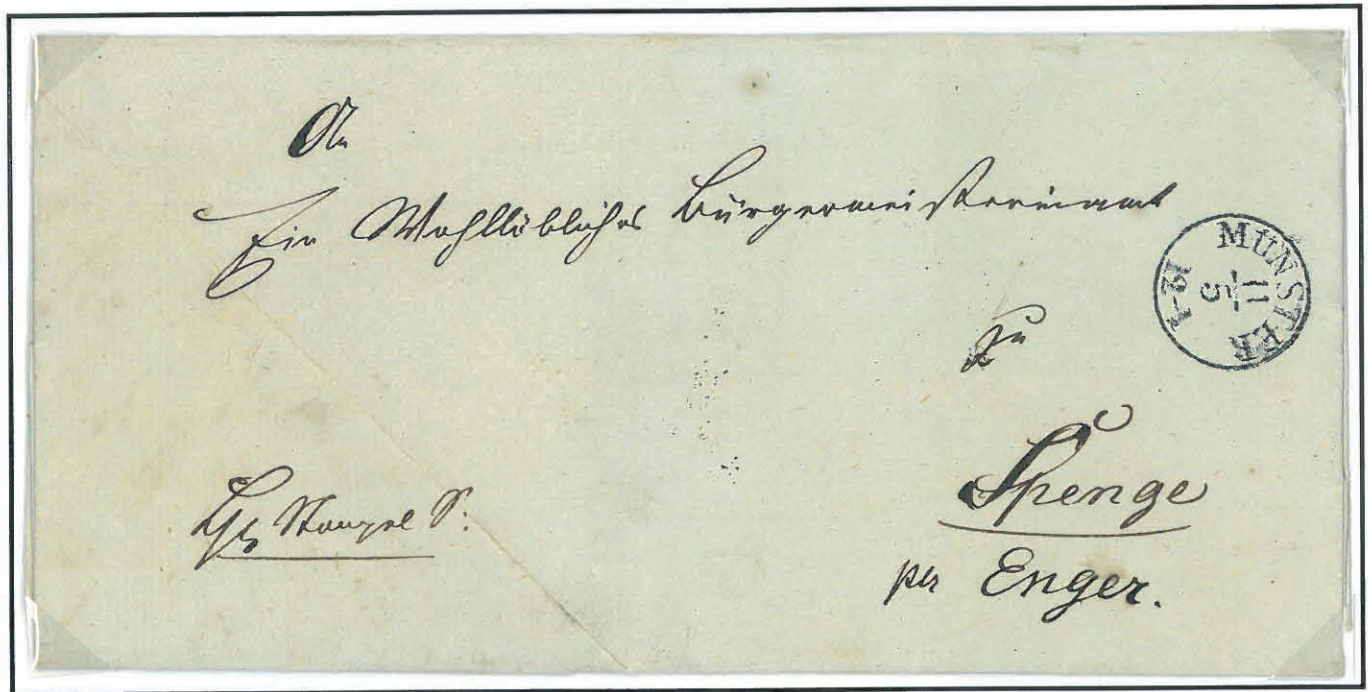 An
Ein Wohllöbliches Bürgermeisterinamt
MUNSTER
11
5
12-1
zu
Spenge
Stempel S:
per Enger.